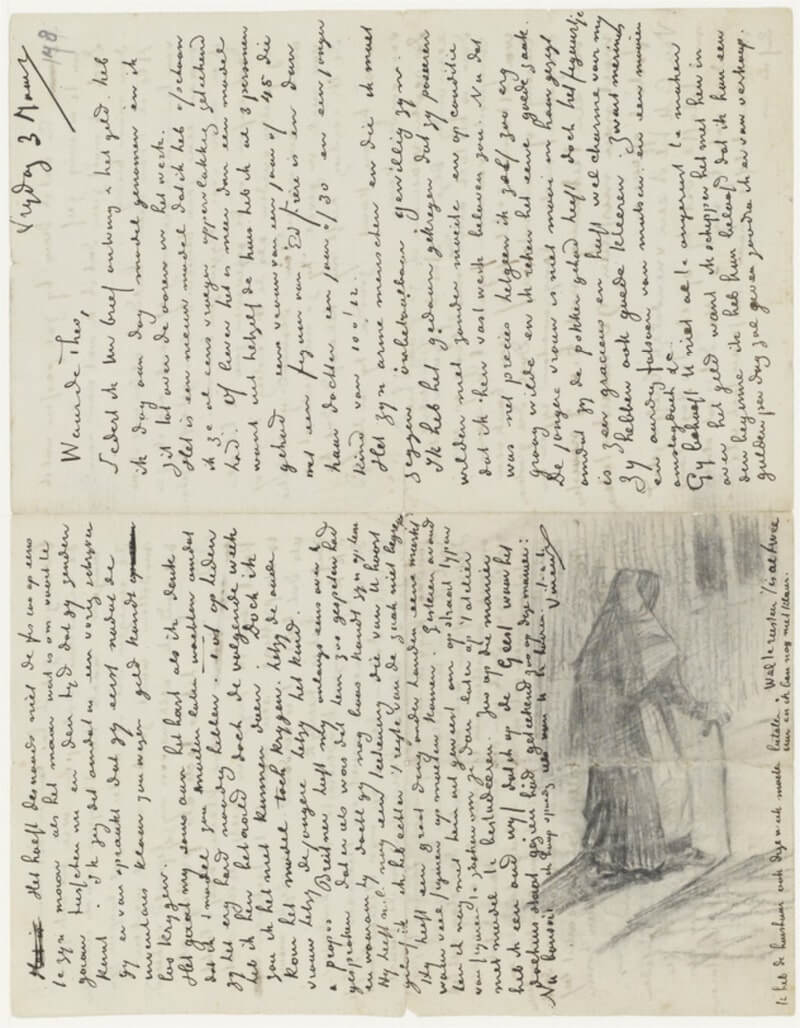 Vrydag 3 Maart
148
Waarde Theo,
Sedert ik Uw brief ontving & het geld heb
ik dag aan dag model genomen en ik
zit tot over de ooren in het werk.
Het is een nieuw model dat ik heb ofschoon
ik ze al eens vroeger oppervlakkig geteekend
had. Of liever het is meer dan een model
want uit hetzelfde huis heb ik al 3 personen
gehad eene vrouw van een jaar of 45 die
net een figuur van Ed frère is en dan
haar dochter een jaar of 30 en een jonger
kind van 10 of 12.
Het zyn arme menschen en die ik moet
zeggen onbetaalbaar gewillig zyn.
Ik heb het gedaan gekregen dat zy poseeren
wilden niet zonder moeite en op conditie
dat ik hen vast werk beloven zou. Nu dat
was net precies hetgeen ik zelf zoo erg
graag wilde en ik reken het eene goede zaak.
De jongere vrouw is niet mooi van gezigt
omdat zy de pokken gehad heeft doch het figuurtje
is zeer gracieus en heeft wel charme voor my
Zy hebben ook goede kleeren. Zwart merinos
en aardig fatsoen van mutsen en een mooien
omslagdoek &c.
Gy behoeft U niet al te ongerust te maken
over het geld want ik schipper het met hen in
den beginne ik heb hun beloofd dat ik hun een
gulden per dag zal geven zoodra ik er van verkoop.
Het hoeft desnoods niet de fs 100 op eens
te zyn maar als het maar wat is om voort te
gaan tusschen nu en den tyd dat gy zenden
kunt. Ik zeg dit omdat in een vorig schryven
gy er van spraakt dat gy eerst nadat de
inventaris klaar zou wezen geld kondt
los krygen.
Het gaat my soms aan het hart als ik denk
dat ik 't model zou moeten laten wachten omdat
zy het erg hard noodig hebben. tot op heden
heb ik hen betaald doch de volgende week
zou ik het niet kunnen doen. Doch ik
kan het model toch krygen. hetzy de oude
vrouw hetzy de jongere hetzy het kind.
à propos Breitner heeft my onlangs eens over U
gesproken dat er iets was dat hem zoo gespeten had
en waarom hy dacht gy nog boos kondt zyn op hem
Hy heeft n.l. nog een teekening die van U hoort
geloof ik ik heb echter 't regte van de zaak niet begrepen
Hy heeft een groot ding onder handen eene markt
waar veel figuren op moeten komen. Gisteren avond
ben ik nog met hem uit geweest om op straat typen
van figuren te zoeken om ze dan later op 't atelier
met model te bestudeeren. Juist op die manier
heb ik een oud wyf dat ik op de Geest waar het
dolhuis staat gezien had geteekend zoo op deze manier:
Nu bonsoir ik hoop spoedig iets van U te hooren. t. à t.
Vincent
Ik heb de huishuur ook deze week moeten betalen. Wel te rusten 't is al twee
uur en ik ben nog niet klaar.